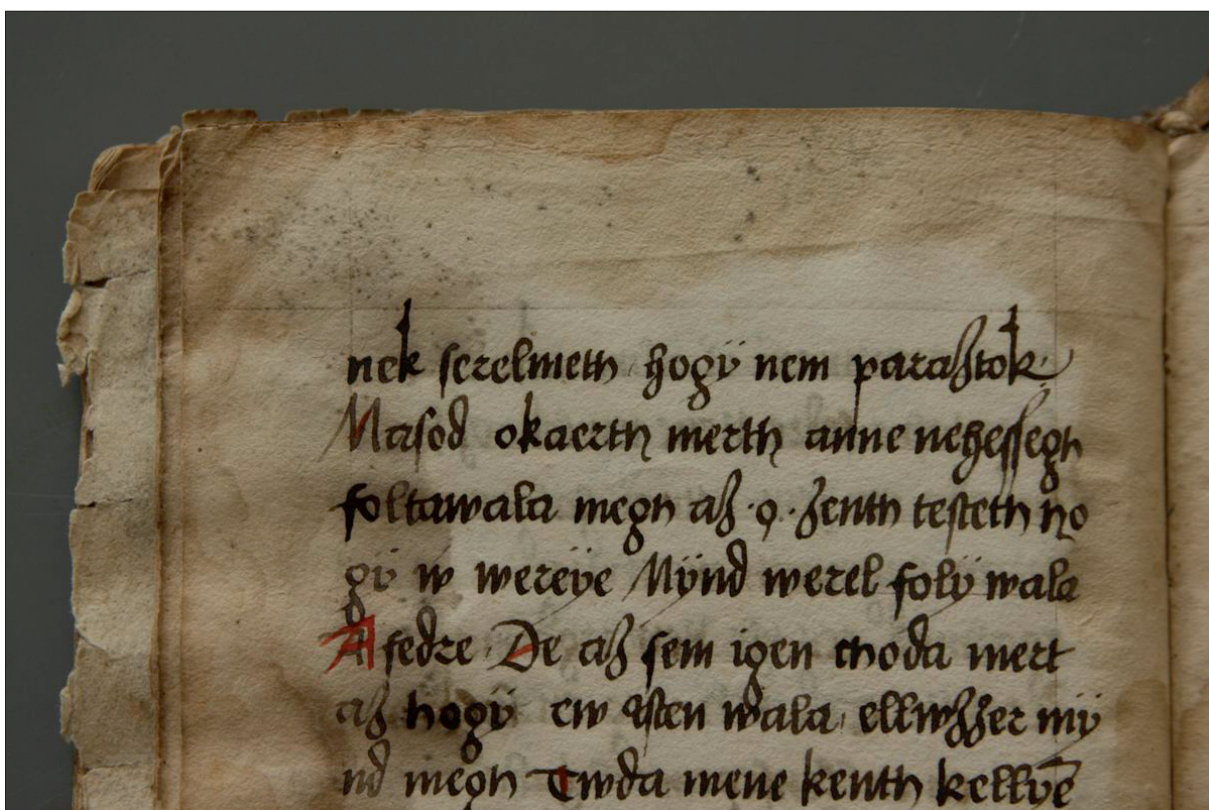 nek serelmeth hogÿ nem paraʒtok
Masod okaerth merth anne neheſſegh
foltawala megh aʒ ·9· ʒenth teſteth ho
gÿ w wereÿe Mÿnd werel folÿ wala
A fedre De aʒ sem igen choda mert
aʒ hogÿ ew iſten wala ellwʒʒer mÿ
nd megh Twda mene kenth kellÿē